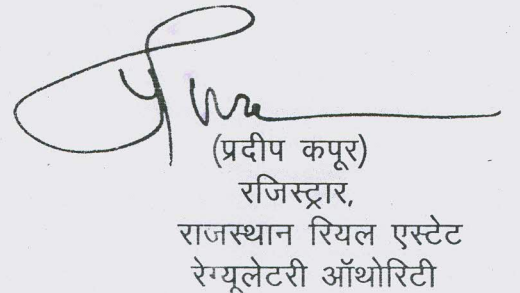 (प्रदीप कपूर)
रजिस्ट्रार,
राजस्थान रियल एस्टेट
रेग्यूलेटरी ऑथोरिटी